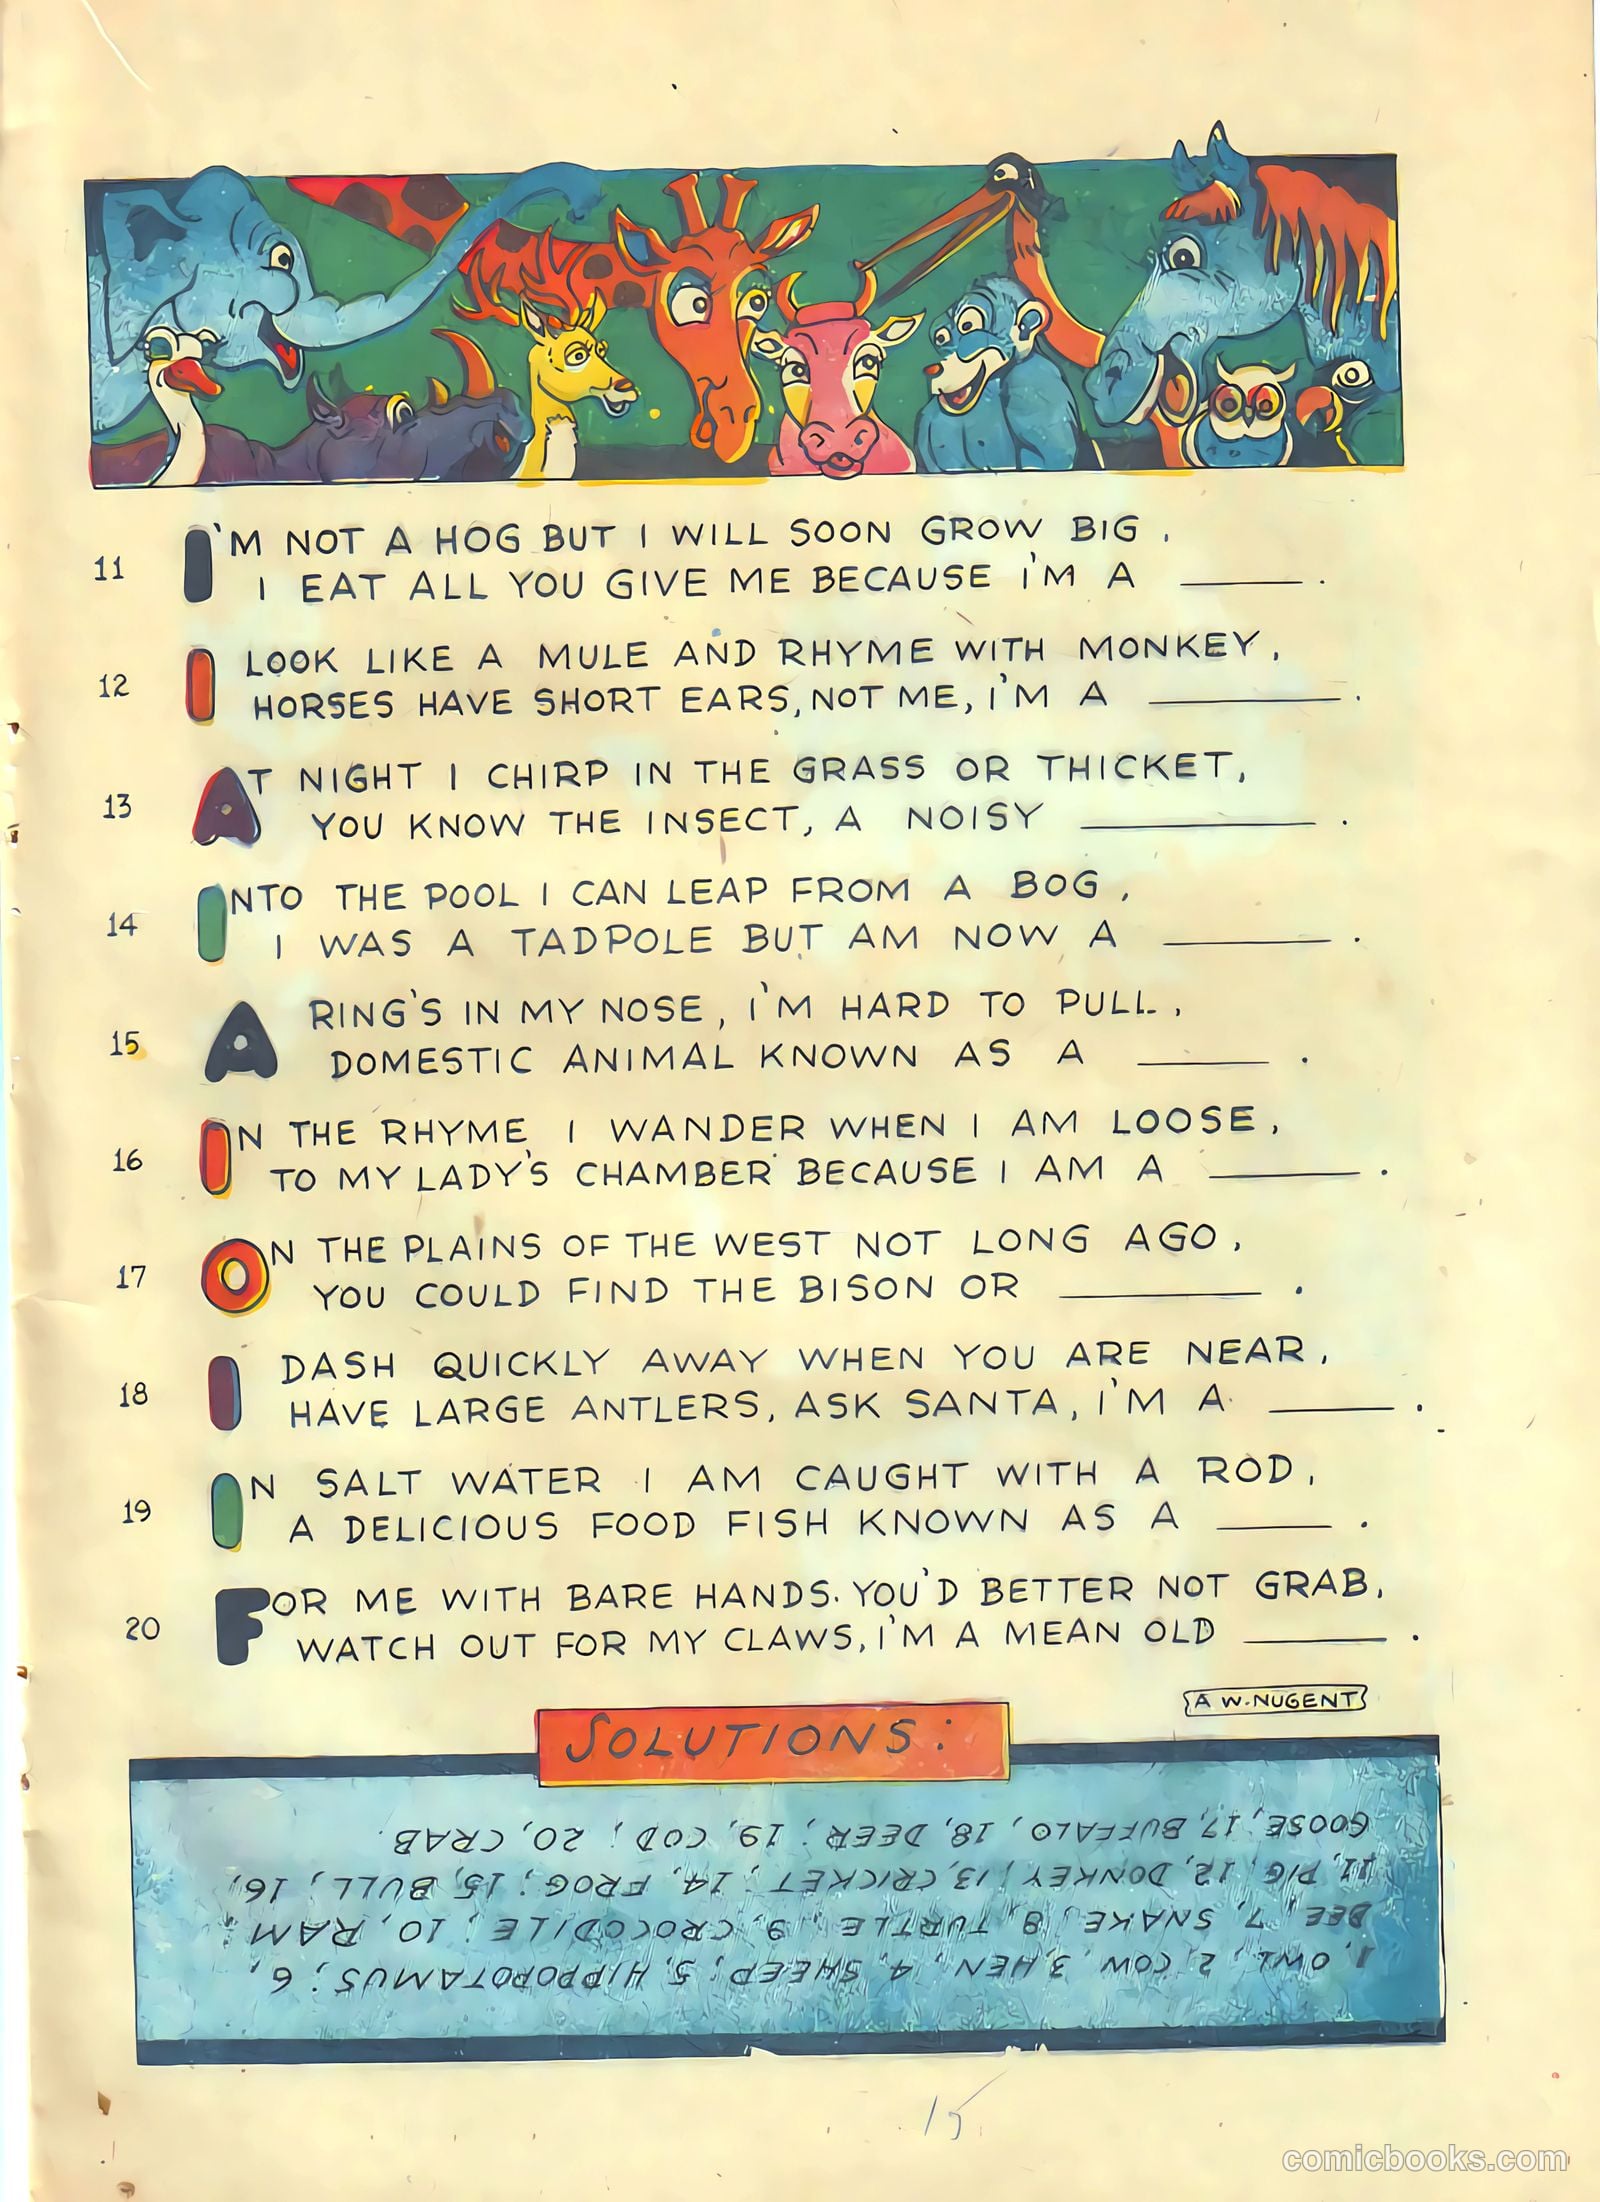 11 I'M NOT A HOG BUT I WILL SOON GROW BIG,
I EAT ALL YOU GIVE ME BECAUSE I'M A ______.
12 I LOOK LIKE A MULE AND RHYME WITH MONKEY,
HORSES HAVE SHORT EARS, NOT ME, I'M A ______.
13 AT NIGHT I CHIRP IN THE GRASS OR THICKET,
YOU KNOW THE INSECT, A NOISY ______.
14 INTO THE POOL I CAN LEAP FROM A BOG,
I WAS A TADPOLE BUT AM NOW A ______.
15 A RING'S IN MY NOSE, I'M HARD TO PULL,
DOMESTIC ANIMAL KNOWN AS A ______.
16 IN THE RHYME I WANDER WHEN I AM LOOSE,
TO MY LADY'S CHAMBER BECAUSE I AM A ______.
17 ON THE PLAINS OF THE WEST NOT LONG AGO,
YOU COULD FIND THE BISON OR ______.
18 I DASH QUICKLY AWAY WHEN YOU ARE NEAR,
HAVE LARGE ANTLERS, ASK SANTA, I'M A ______.
19 IN SALT WATER I AM CAUGHT WITH A ROD,
A DELICIOUS FOOD FISH KNOWN AS A ______.
20 FOR ME WITH BARE HANDS. YOU'D BETTER NOT GRAB,
WATCH OUT FOR MY CLAWS, I'M A MEAN OLD ______.
A W. NUGENT
SOLUTIONS:
1, OWL; 2, COW; 3, HEN; 4, SHEEP; 5, HIPPOPOTAMUS; 6,
BEE; 7, SNAKE; 8, TURTLE; 9, CROCODILE; 10, RAM;
11, PIG; 12, DONKEY; 13, CRICKET; 14, FROG; 15, BULL; 16,
GOOSE; 17, BUFFALO; 18, DEER; 19, COD; 20, CRAB.
15
comicbooks.com